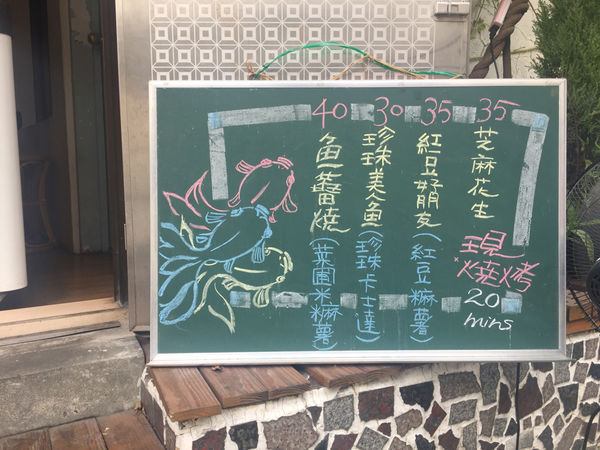 35
芝麻花生
35
紅豆好朋友
(紅豆麻薯)
30
珍珠美人魚
(珍珠卡士達)
40
魚醬燒
(菜圃米麻薯)
現
*燒烤
20
mins